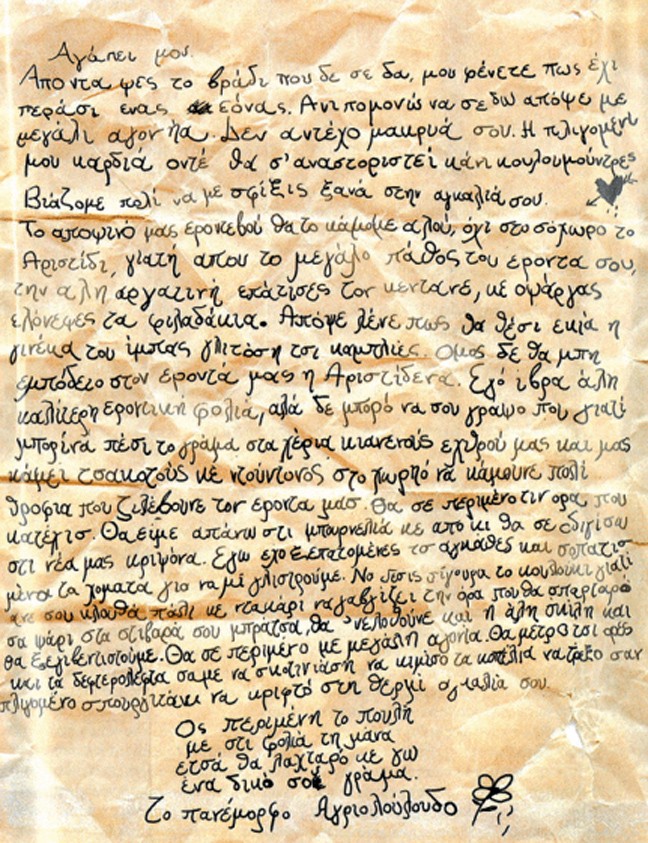 Αγάπει μου
Απο ντα ψες το βράδι που δε σε δα, μου φένετε πως έχι
περάσι ενας εόνας. Ανιπομονώ να σε δω απόψε με
μεγάλι αγονηα. Δεν αντέχο μακρυά σου. Η πλιγομένι
μου καρδιά οντέ θα σ'αναστοριστεί κάνι κουλουμούντρες
Βιάζομε πολί να με σφίξις ξανά στην αγκαλιά σου.
Το αποψινό μας εροντεβού θα το κάμομε αλού, όχι στο σόχωρο το
Αριστίδι, γιατή απου το μεγάλο πάθος του εροντα σου,
την αλη αργατινή επάτισες τον κεντανέ, κε οψάργας
ελόνεψες τα φιλαδάκια. Απόψε λένε πως θα θέσι εκιά η
γινέκα του ίμπας γλιτόση τσι καμπλιές. Ομος δε θα μπη
εμπόδειο στον έροντά μας η Αριστίδενα. Εγό ίβρα άλη
καλίτερη εροντική φολιά, αλά δε μπορό να σου γραψο που γιατί
μπορί να πέσι το γράμα στα χέρια κιανενούς εχθρού μας και μας
κάμει τσακοτούς κε ντούντονος στο χωρηό να κάμουνε πολί
θροφια που ζιλέβουνε τον εροντα μας. Θα σε περιμένο τιν ορα που
κατέχις. Θα είμε απάνω στι μπουρνελιά κε απο κι θα σε οδιγίσω
στι νέα μας κριψόνα. Εγω εχο ξεπατομένες τσ αγκάθες και σοπατισ
μένα τα χοματα για να μι γλιστρούμε. Να δέσις σίγουρα το κουλούκι γιατί
ανε σου κλουθά πάλι κε ντακάρι να γαβγίζει την όρα που θα σπαρταρό
σα ψάρι στα στιβαρά σου μπράτσα, θα νελουθούνε και η άλη σκίλη και
θα ξεγιβεντιστούμε. Θα σε περιμένο με μεγάλη αγονία. Θα μέτρο τσι ορες
και τα δεφτερολέφτα σαμε να σκοτινιάση να κιμίσο τα κοπέλια να τρέξο σαν
πλιγομένο σπουργιτάκι να κριφτό στη θερμί αγκαλιά σου.
Ος περιμένη το πουλή
με στι φολιά τη μάνα
ετσά θα λαχταρό κε γω
ένα δικό σου γράμα.
Το πανέμορφο Αγριολούλουδο